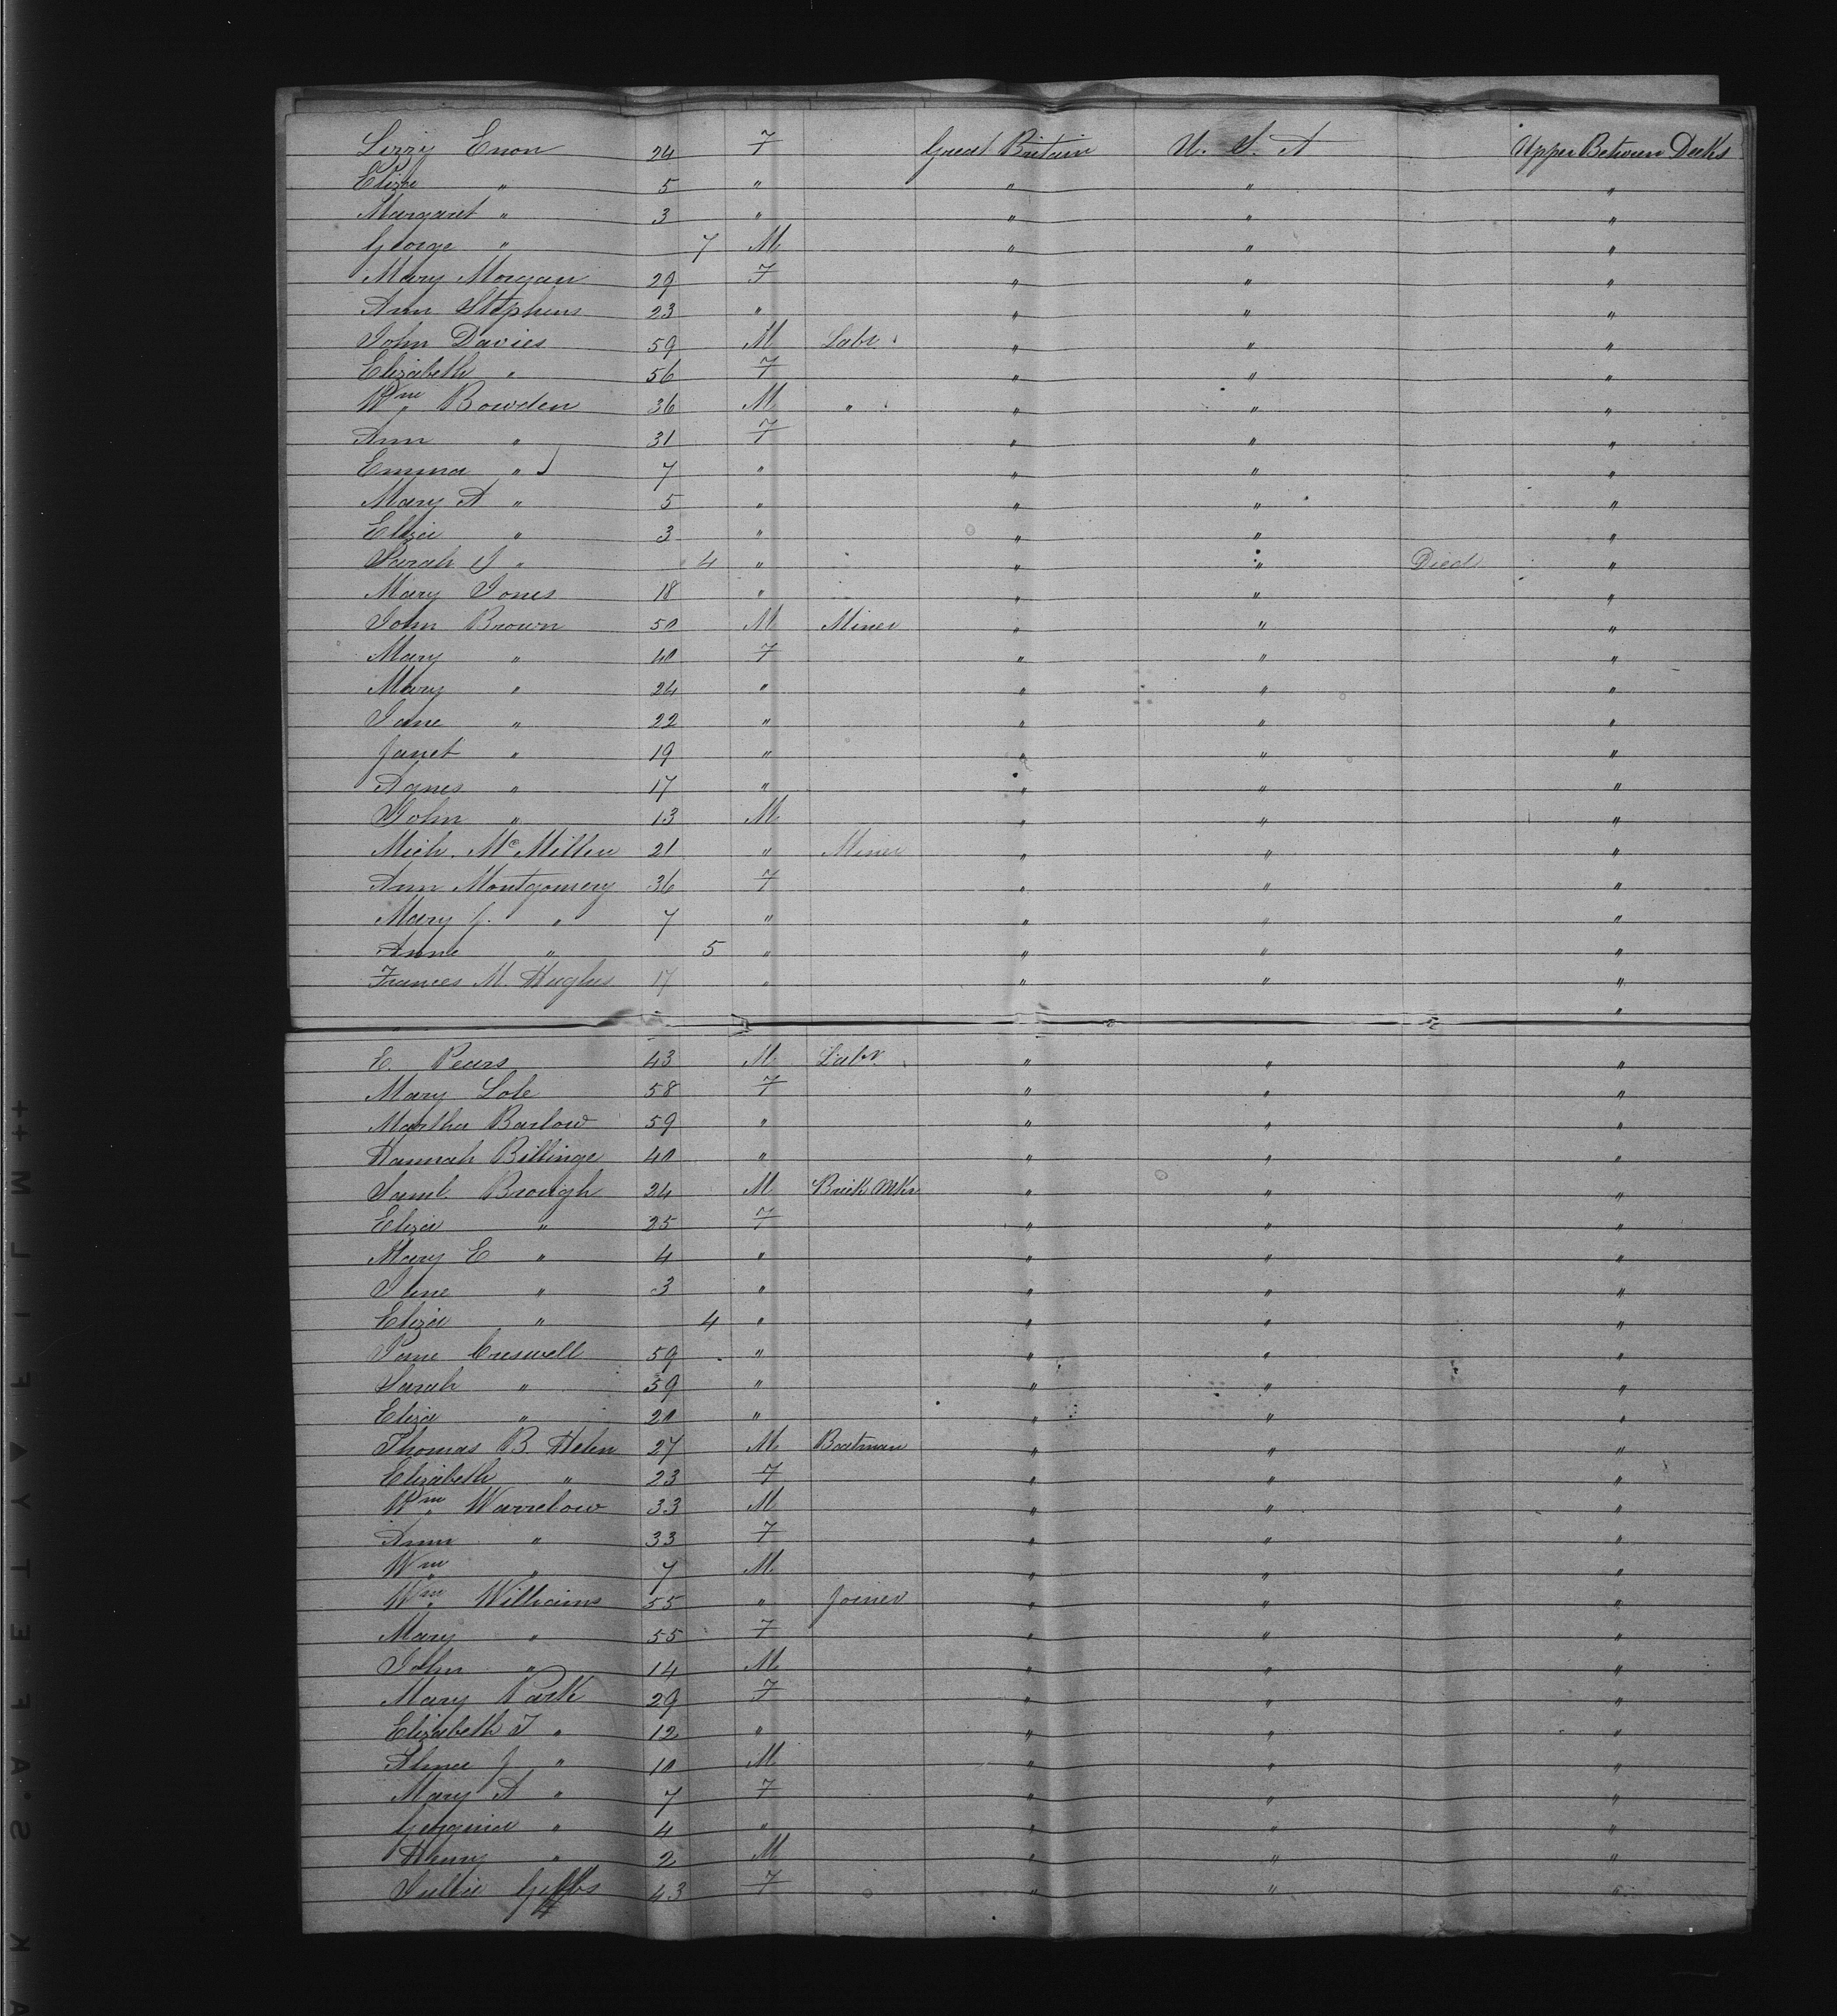 Lizzy Enon 24 F Great Britain U. S. A Upper Between Decks
Eliza " 5 " " " "
Margaret " 3 " " " "
George " 7 M " " "
Mary Morgan 29 F " " "
Ann Stephens 23 " " " "
John Davies 59 M Labr. " " "
Elizabeth " 56 F " " "
Wm Bowden 36 M " " " "
Ann " 31 F " " "
Emma " 7 " " " "
Mary A " 5 " " " "
Eliza " 3 " " " "
Sarah J " 4 " " " Died "
Mary Jones 18 " " " "
John Brown 50 M Miner " " "
Mary " 40 F " " "
Mary " 24 " " " "
Jane " 22 " " " "
Janet " 19 " " " "
Agnes " 17 " " " "
John " 13 M " " "
Mich. McMillen 21 " Miner " " "
Ann Montgomery 36 F " " "
Mary J. " 7 " " " "
Anne " 5 " " " "
Frances M. Hughes 17 " " " "
"
E. Pears 43 M Labr. " " "
Mary Lole 58 F " " "
Martha Barlow 59 " " " "
Hannah Billinge 40 " " " "
Saml. Brough 24 M Brick Mkr " " "
Eliza " 25 F " " "
Mary E " 4 " " " "
Jane " 3 " " " "
Eliza " 4 " " " "
Jane Creswell 59 " " " "
Sarah " 39 " " " "
Eliza " 20 " " " "
Thomas B. Helen 27 M Boatman " " "
Elizabeth " 23 F " " "
Wm Warrelow 33 M " " "
Ann " 33 F " " "
Wm " 7 M " " "
Wm Williams 55 " Joiner " " "
Mary " 55 F " " "
John " 14 M " " "
Mary Park 29 F " " "
Elizabeth J " 12 " " " "
J " 10 M " " "
Mary A " 7 F " " "
Georgina " 4 " " " "
Henry " 2 M " " "
43 F " " "
KAS.S.A.FFETTY▲FILM++